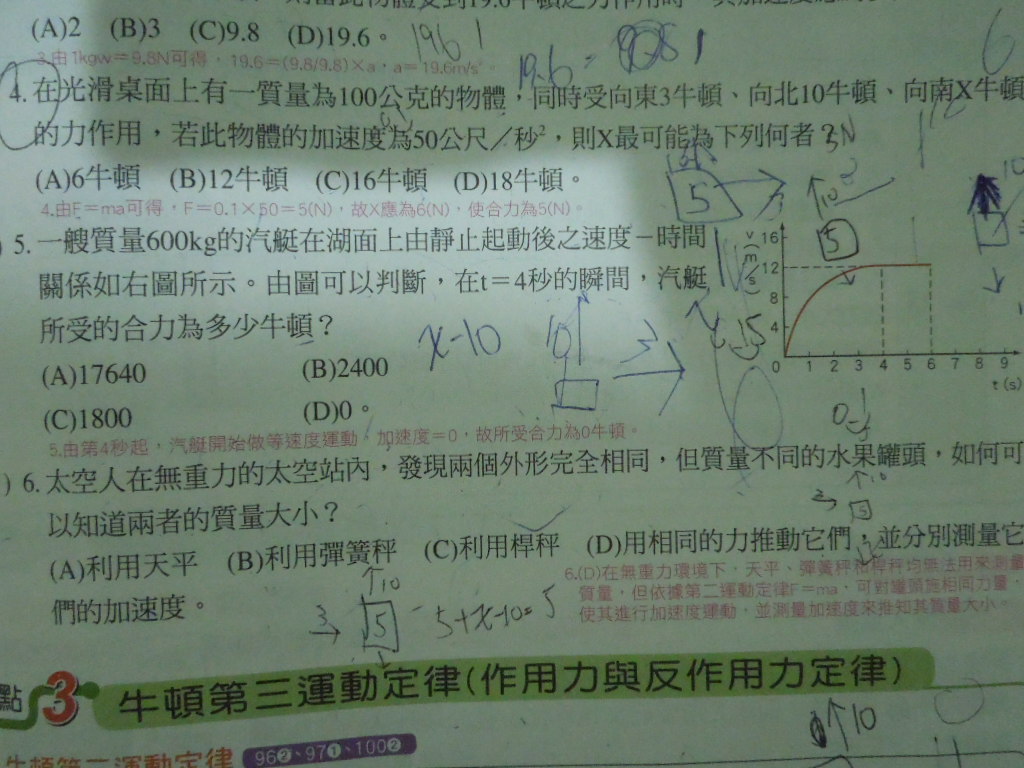 (A)2 (B)3 (C)9.8 (D)19.6。
3.由1kgw=9.8N可得，19.6=(9.8/9.8)×a，a=19.6m/s²。
4.在光滑桌面上有一質量為100公克的物體，同時受向東3牛頓、向北10牛頓、向南X牛頓
的力作用，若此物體的加速度為50公尺／秒²，則X最可能為下列何者？
(A)6牛頓 (B)12牛頓 (C)16牛頓 (D)18牛頓。
4.由F=ma可得，F=0.1×50=5(N)，故X應為6(N)，使合力為5(N)。
) 5.一艘質量600kg的汽艇在湖面上由靜止起動後之速度－時間
關係如右圖所示。由圖可以判斷，在t=4秒的瞬間，汽艇
所受的合力為多少牛頓？
(A)17640 (B)2400
(C)1800 (D)0。
5.由第4秒起，汽艇開始做等速度運動，加速度=0，故所受合力為0牛頓。
v(m/s)
16
12
8
4
0 1 2 3 4 5 6 7 8 9
t(s)
) 6.太空人在無重力的太空站內，發現兩個外形完全相同，但質量不同的水果罐頭，如何可
以知道兩者的質量大小？
(A)利用天平 (B)利用彈簧秤 (C)利用桿秤 (D)用相同的力推動它們，並分別測量它
們的加速度。
6.(D)在無重力環境下，天平、彈簧秤和桿秤均無法用來測量
質量，但依據第二運動定律F=ma，可對罐頭施相同力量，
使其進行加速度運動，並測量加速度來推知其質量大小。
點 3 牛頓第三運動定律(作用力與反作用力定律)
牛頓第三運動定律 96❷、97❶、100❷
1961
19.6=
5
10
5
x-10
10
3
3
5
10
5+x-10=5
10